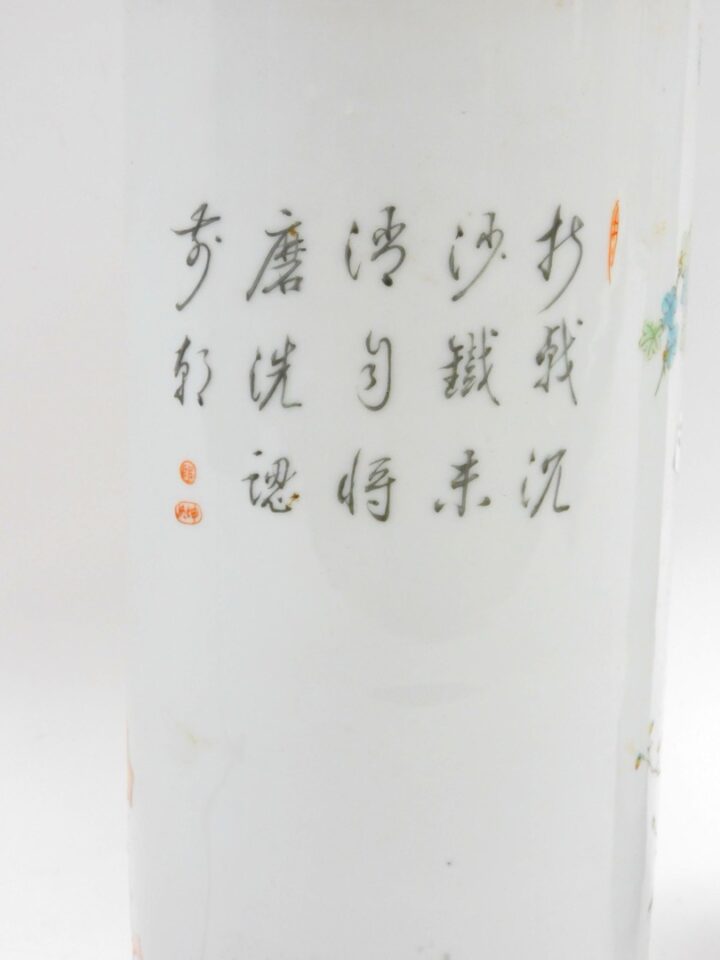 折戟沉
沙鐵未
消自將
磨洗認
前朝